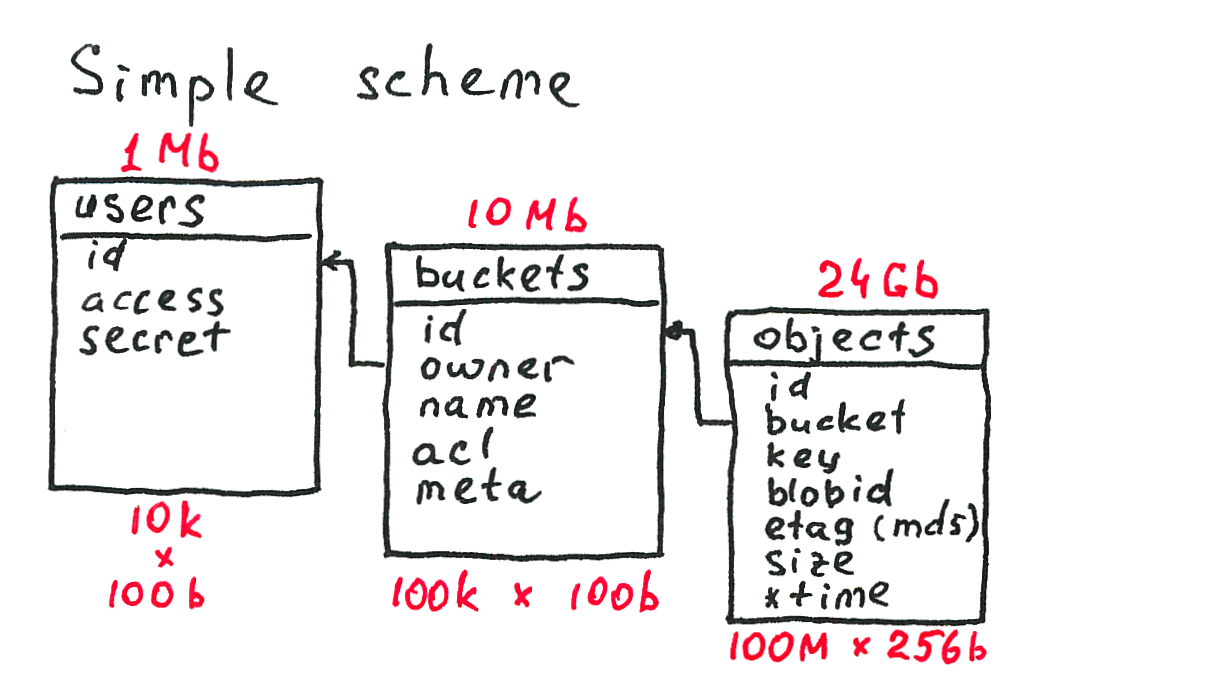 Simple scheme
1 Mb
users
id
access
secret
10k
x
100b
10 Mb
buckets
id
owner
name
acl
meta
100k x 100b
24Gb
objects
id
bucket
key
blobid
etag (md5)
size
*time
100M x 256b